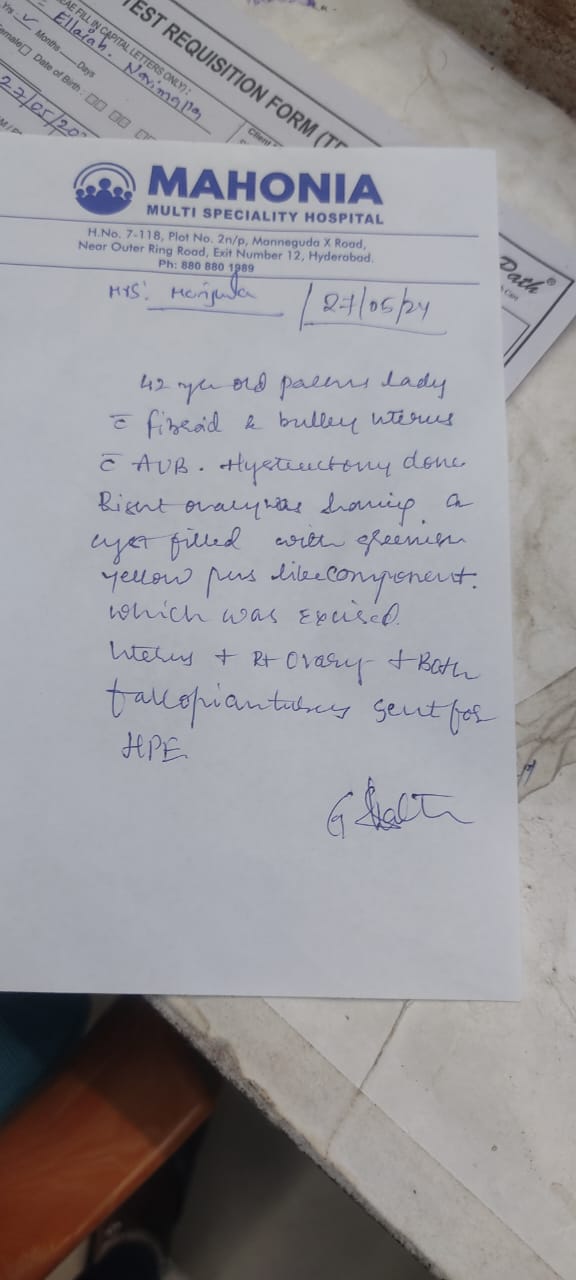 TEST REQUISITION FORM (T
EASE FILL IN CAPITAL LETTERS ONLY) :
Ellaiah. Narimalla
Yrs. Months Days
Female Date of Birth :
Client
27/05/20
Path®
MAHONIA
MULTI SPECIALITY HOSPITAL
H.No. 7-118, Plot No. 2n/p, Manneguda X Road,
Near Outer Ring Road, Exit Number 12, Hyderabad.
Ph: 880 880 1989
Mrs: Manjula 27/05/24
42 year old lady
c̄ fibroid & bulkey uterus
c̄ AUB. Hysterectomy done
Right ovary was having a
cyst filled with greenish
yellow pus like component.
which was excised.
Uterus + Rt Ovary + Both
fallopian tubes sent for
HPE
G